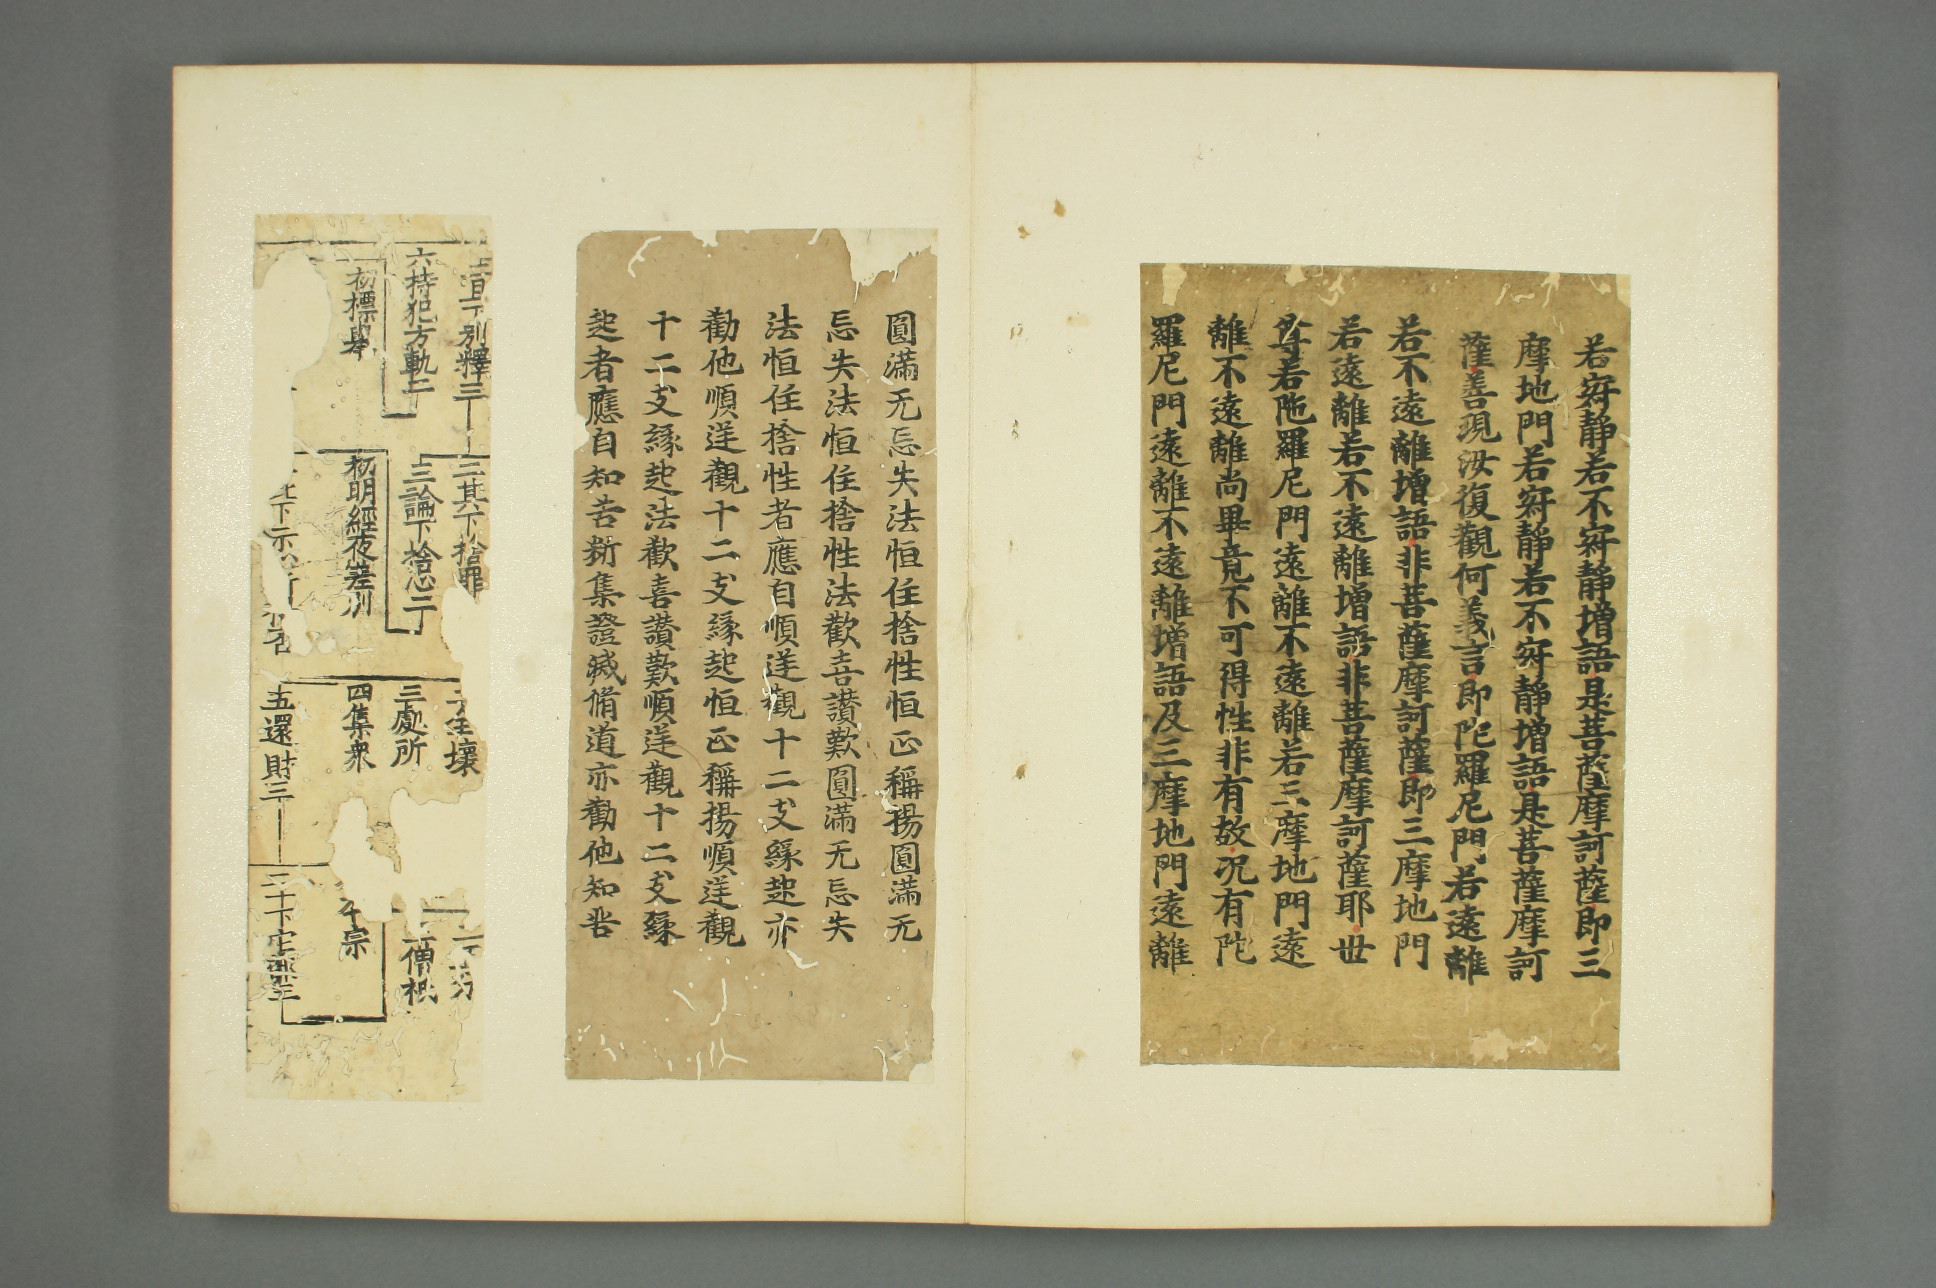 若寂静若不寂静増語是菩薩摩訶薩即三
摩地門若寂静若不寂静増語是菩薩摩訶
薩善現汝復觀何義言即陀羅尼門若遠離
若不遠離増語非菩薩摩訶薩即三摩地門
若遠離若不遠離増語非菩薩摩訶薩耶世
尊若陁羅尼門遠離不遠離若三摩地門遠
離不遠離尚畢竟不可得性非有故况有陀
羅尼門遠離不遠離増語及三摩地門遠離
圓滿无忘失法恒住捨性恒正稱揚圓滿无
忘失法恒住捨性法歡喜讃歎圓滿无忘失
法恒住捨性者應自順逆觀十二支緣起亦
勸他順逆觀十二支緣起恒正稱揚順逆觀
十二支緣起法歡喜讃歎順逆觀十二支緣
起者應自知苦斷集證滅脩道亦勸他知苦
下別釋三
三其下捨罪
壞
六持犯方軌二
三論下捨心二
三處所
僧祇
初標舉
初明經夜差別
四集衆
宗
下示
五還財三
二十下定罪三